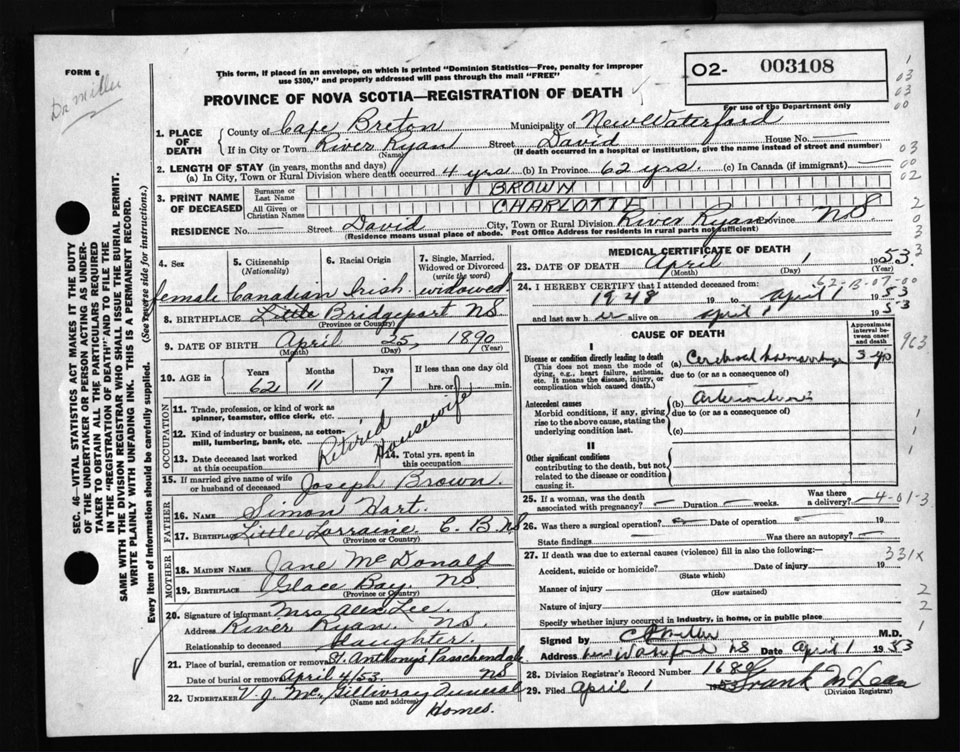 FORM 6
Dr Miller
This form, if placed in an envelope, on which is printed "Dominion Statistics—Free, penalty for improper
use $300," and properly addressed will pass through the mail "FREE"
O2- 003108
PROVINCE OF NOVA SCOTIA—REGISTRATION OF DEATH
For use of the Department only
1. PLACE OF DEATH
County of Cape Breton Municipality of New Waterford
If in City or Town River Ryan Street David House No. —
(Name) (If death occurred in a hospital or institution, give the name instead of street and number)
2. LENGTH OF STAY (in years, months and days)
(a) In City, Town or Rural Division where death occurred 4 yrs (b) In Province 62 yrs. (c) In Canada (if immigrant) —
3. PRINT NAME OF DECEASED
Surname or Last Name BROWN
All Given or Christian Names CHARLOTTE
RESIDENCE No. — Street David City, Town or Rural Division River Ryan Province NS.
(Residence means usual place of abode. Post Office Address for residents in rural parts not sufficient)
4. Sex
female
5. Citizenship (Nationality)
Canadian
6. Racial Origin
Irish
7. Single, Married, Widowed or Divorced (write the word)
widowed
8. BIRTHPLACE Little Bridgeport NS
(Province or Country)
9. DATE OF BIRTH April 25, 1890
(Month) (Day) (Year)
10. AGE in Years 62 Months 11 Days 7 If less than one day old
hrs. or min.
OCCUPATION
11. Trade, profession, or kind of work as spinner, teamster, office clerk, etc.
12. Kind of industry or business, as cotton-mill, lumbering, bank, etc.
Retired Housewife
13. Date deceased last worked at this occupation
14. Total yrs. spent in this occupation
15. If married give name of wife or husband of deceased Joseph Brown.
FATHER
16. NAME Simon Hart.
17. BIRTHPLACE Little Lorraine C. B. NS
(Province or Country)
MOTHER
18. MAIDEN NAME Jane McDonald
19. BIRTHPLACE Glace Bay. NS
(Province or Country)
20. Signature of informant Mrs Alex Lee.
Address River Ryan. NS.
Relationship to deceased daughter.
21. Place of burial, cremation or removal St. Anthony's Passchendale
Date of burial or removal April 4/53. NS
22. UNDERTAKER V. J. McGillivray Funeral
(Name and address) Homes.
MEDICAL CERTIFICATE OF DEATH
23. DATE OF DEATH April 1 1953.
(Month) (Day) (Year)
62-B-07-00
24. I HEREBY CERTIFY that I attended deceased from:
1948 19 to April 1953
and last saw her alive on April 1 1953
CAUSE OF DEATH
Approximate interval between onset and death
I
Disease or condition directly leading to death (a) Cerebral haemorrhage
(This does not mean the mode of dying, e.g., heart failure, asthenia, etc. It means the disease, injury, or complication which caused death.)
due to (or as a consequence of)
Antecedent causes (b)
Morbid conditions, if any, giving rise to the above cause, stating the underlying condition last.
due to (or as a consequence of)
(c)
II
Other significant conditions
contributing to the death, but not related to the disease or condition causing it.
25. If a woman, was the death associated with pregnancy? — Duration — weeks. Was there a delivery? —
4-01-3
26. Was there a surgical operation? — Date of operation — 19
State findings Was there an autopsy? —
27. If death was due to external causes (violence) fill in also the following:—
331x
Accident, suicide or homicide? Date of injury 19
(State which)
Manner of injury
(How sustained)
Nature of injury
Specify whether injury occurred in industry, in home, or in public place
Signed by Miller M.D.
Address New Waterford NS Date April 1 1953
28. Division Registrar's Record Number 1689
29. Filed April 1 Frank McLean
(Division Registrar)
SEC. 46—VITAL STATISTICS ACT MAKES IT THE DUTY
OF THE UNDERTAKER OR PERSON ACTING AS UNDER-
TAKER TO OBTAIN ALL THE PARTICULARS REQUIRED
IN THE "REGISTRATION OF DEATH" AND TO FILE THE
SAME WITH THE DIVISION REGISTRAR WHO SHALL ISSUE THE BURIAL PERMIT.
WRITE PLAINLY WITH UNFADING INK. THIS IS A PERMANENT RECORD.
Every item of Information should be carefully supplied. (See reverse side for instructions.)
1
03
03
00
03
00
02
2
0
3
3
963
1
1
2
2
1